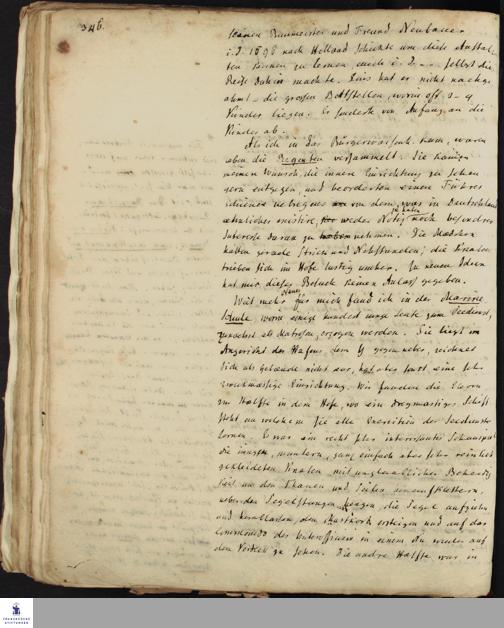 346.
seinen Baumeister und Freund Neubauer
i. J. 1698 nach Holland schickte um diese Anstal-
ten kennen zu lernen, auch i. J. selbst die
Reise dahin machte. Eins hat er nicht nachge-
ahmt - die großen Bettstellen, worin oft 3-4
Kinder liegen. Er sonderte von Anfang an die
Kinder ab.
Als ich in das Bürgerwaisenh. kam, waren
eben die Regenten versammelt. Sie kamen
meinen Wunsch, die innere Einrichtung zu sehen
gern entgegen, und beorderten einen Führer
schienen übrigens von dem, was in Deutschland
ähnliches existire, weder Notiz zu haben noch besondres
Interesse daran zu nehmen. Die Mädchen
hatten gerade Strick und Nähstunden; die Knaben
trieben sich im Hofe lustig umher. Zu neuen Ideen
hat mir dieser Besuch keinen Anlaß gegeben.
Weit mehr Neues für mich fand ich in der Marine
Schule, worin einige hundert junge Leute zum Seedienst,
zunächst als Matrosen, erzogen werden. Sie liegt im
Angesicht des Hafens dem Y gegenüber, zeichnet
sich als Gebäude nicht aus, hat aber sonst eine sehr
zweckmäßige Einrichtung. Wir fanden die Eleven
zur Hälfte in dem Hofe, wo ein dreymastiges Schiff
steht an welchem sie alle Exercitien des Seedienstes
lernen. Es war ein recht sehr interessantes Schauspiel
die jungen, muntern, ganz einfach aber sehr reinlich
gekleideten Knaben mit unglaublicher Behendig
keit an den Thauen und Leitern hinaufklettern,
neben den Segelstangen hängen, die Segel aufziehn
und herablassen, den Mastkorb ersteigen und auf das
Commando des Unterofficiers in einem Nu wieder auf
dem Verdeck zu sehen. Die andre Hälfte war in
FRANCKESCHE
STIFTUNGEN